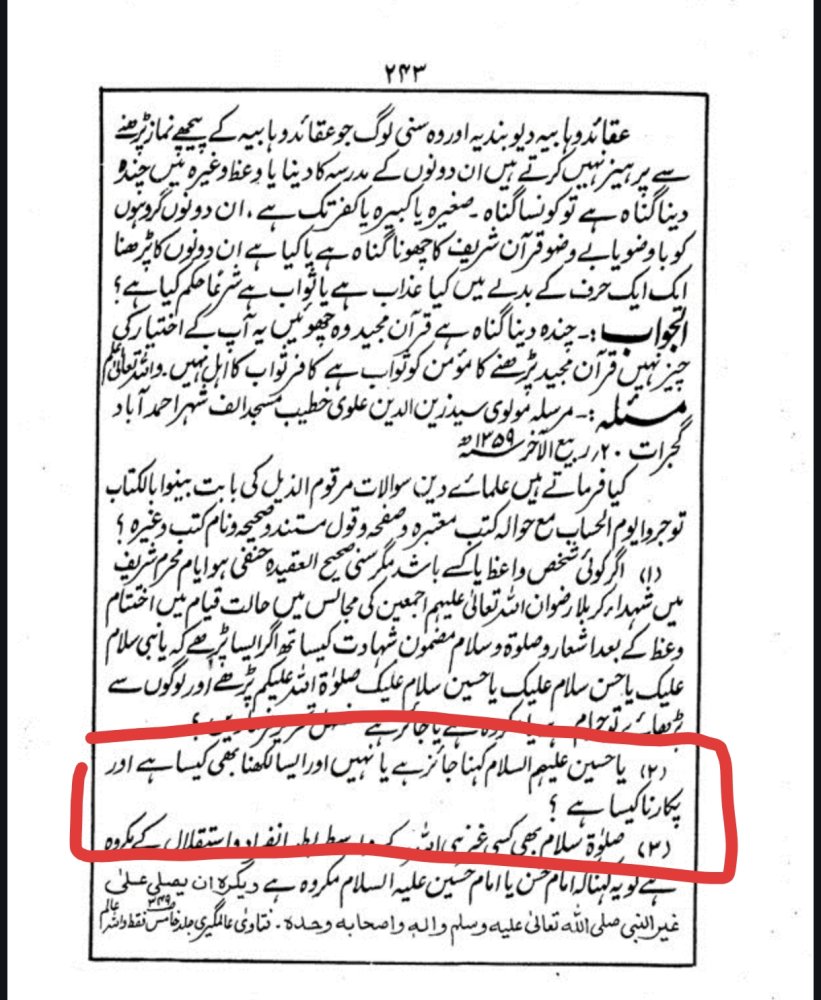 ۲۴۳
عقائد وہابیہ دیوبندیہ اور وہ سنی لوگ جو عقائد وہابیہ کے پیچھے نماز پڑھنے
سے پرہیز نہیں کرتے ہیں ان دونوں کے مدرسہ کا دینا یا وعظ وغیرہ میں چندہ
دینا گناہ ہے تو کونسا گناہ ۔ صغیرہ یا کبیرہ یا کفر تک ہے ، ان دونوں گروہوں
کو باوضو یا بے وضو قرآن شریف کا چھونا گناہ ہے یا کیا ہے ان دونوں کا پڑھنا
ایک ایک حرف کے بدلے میں کیا عذاب ہے یا ثواب ہے شرعًا حکم کیا ہے ؟
الجواب :۔ چندہ دینا گناہ ہے قرآن مجید وہ چھوئیں یہ آپ کے اختیار کی
چیز نہیں قرآن مجید پڑھنے کا مؤمن کو ثواب ہے کافر ثواب کا اہل نہیں ۔ واللہ تعالٰی اعلم
مسئلہ :۔ مرسلہ مولوی سید زین الدین علوی خطیب مسجد الف شہر احمد آباد
گجرات ۲۰؍ ربیع الآخر ۱۳۵۹ھ
کیا فرماتے ہیں علمائے دین سوالات مرقوم الذیل کی بابت بینوا بالکتاب
توجروا یوم الحساب مع حوالہ کتب معتبرہ وصفحہ وقول مستند وصحیحہ ونام کتب وغیرہ ؟
(۱) اگر کوئی شخص واعظ یا کسے باشد مگر سنی صحیح العقیدہ حنفی ہو ایام محرم شریف
میں شہداء کربلا رضوان اللہ تعالٰی علیہم اجمعین کی مجالس میں حالت قیام میں اختتام
وعظ کے بعد اشعار وصلوٰۃ وسلام مضمون شہادت کیساتھ اگر ایسا پڑھے کہ یا نبی سلام
علیک یا حسن سلام علیک یا حسین سلام علیک صلوٰۃ اللہ علیکم پڑھے اور لوگوں سے
پڑھائے تو حرام ہے یا مکروہ ہے یا جائز ہے
(۲) یا حسین علیہم السلام کہنا جائز ہے یا نہیں اور ایسا لکھنا بھی کیسا ہے اور
پکارنا کیسا ہے ؟
(۳) صلوٰۃ سلام بھی کسی غیر نبی اللہ کے واسطے انفراد واستقلال کے مکروہ
ہے تو یہ کہنا کہ امام حسن یا امام حسین علیہ السلام مکروہ ہے ویکرہ ان یصلی علی
غیر النبی صلی اللہ تعالٰی علیہ وسلم والہ واصحابہ وحدہ ۔ فتاوی عالمگیری جلد خامس فقط واللہ اعلم